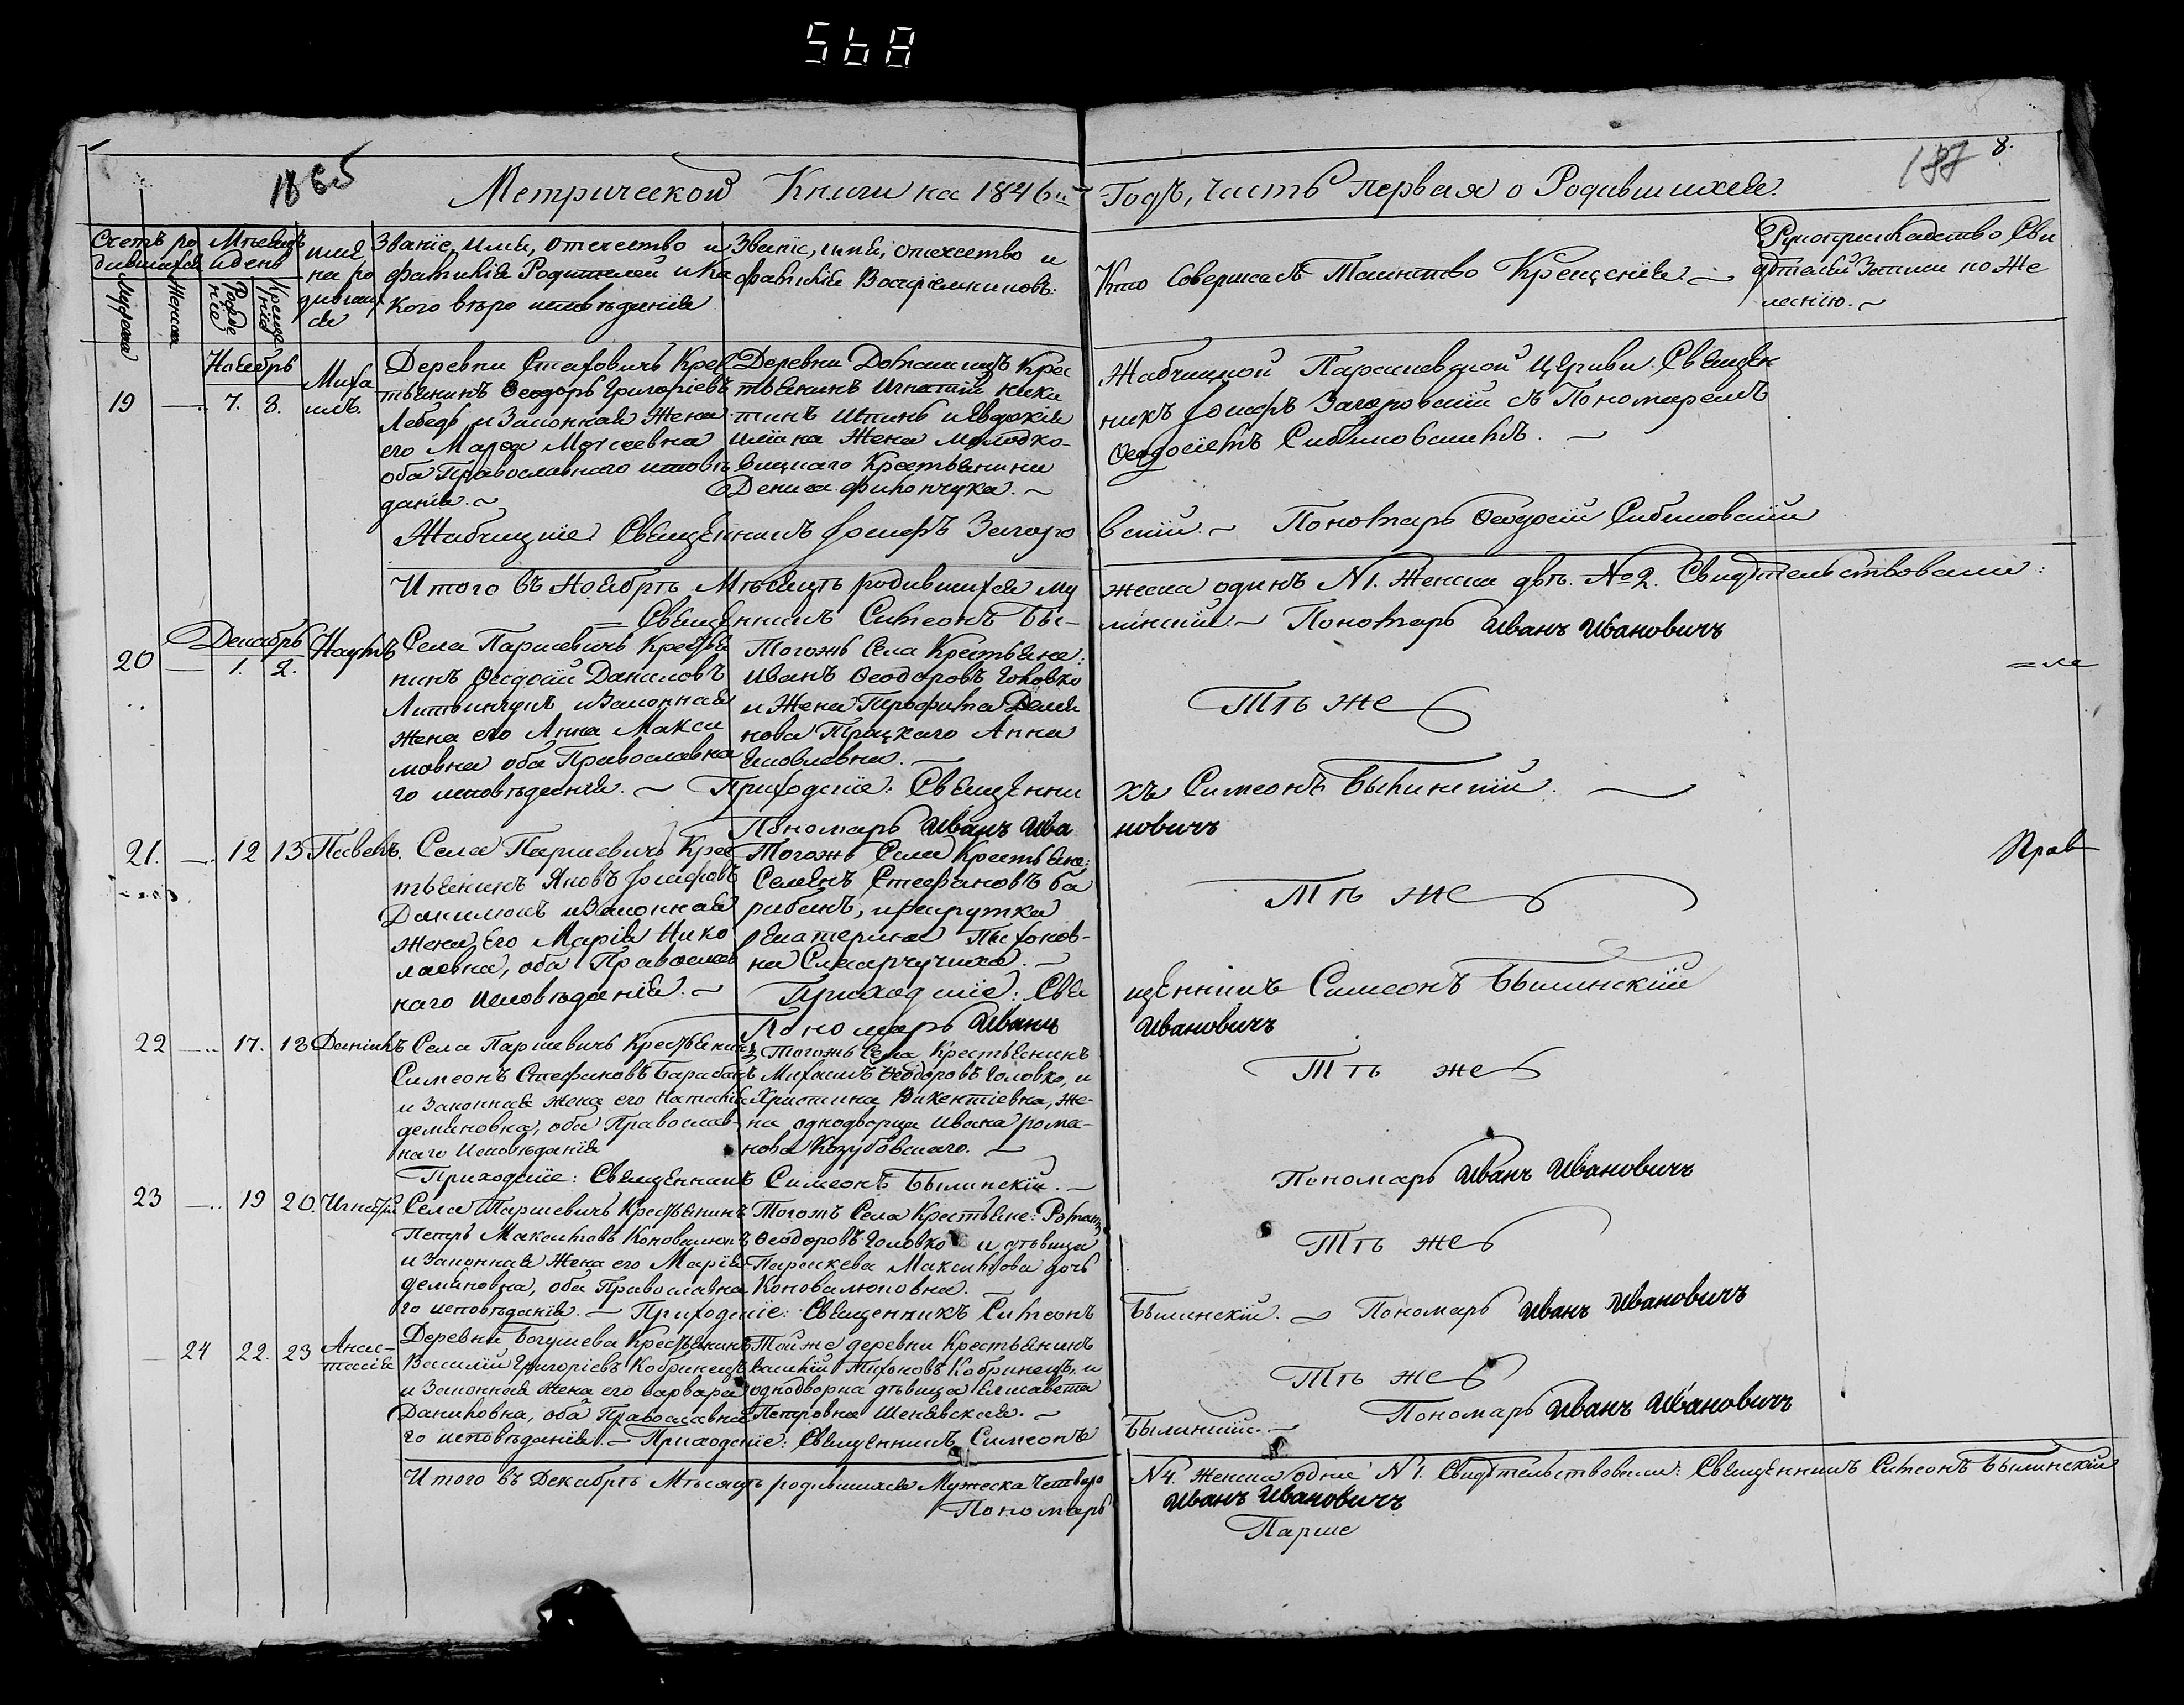 568
1865
187
8.
Метрической Книги на 1846й
Годъ, Часть первая о Родившихся.
Счетъ ро
дившихся
Мужеска
Женска
Мѣсяцъ
и день
Рожде
нія
Креще
нія
Имя
на ро
дивших
ся
Званіе, имя, отечество и
фамилія Родителей и Ка
кого вѣро исповѣданія
Званіе, имя, отечество и
фамилія Воспріемниковъ.
Кто Совершалъ Таинство Крещенія
Рукоприкладство Сви
дѣтелей Записи по Же
ланію.
Ноябрь
19 7. 8.
Миха
илъ.
Деревни Стаховичъ Крес
тьянинъ Ѳеодоръ Григоріевъ
Лебедь, и Законная Жена
его Марѳа Моисеевна
оба Православнаго исповѣ
данія.
Деревни Крес
тьянинъ Игнатій Ники
тинъ и Евдокія
Жена
Крестьянина
Дениса
Жабчицкой Параскевской Церкви Священ
никъ Іосифъ Загоровскій съ Пономаремъ
Ѳеодосіемъ
Жабчицкіе Священникъ Іосифъ Загоро
вскій. Пономарь Ѳеодосій
Итого въ Ноябрѣ Мѣсяцѣ родившихся му
жеска одинъ №1. Женска двѣ. №2. Свидѣтельствовали:
Священникъ Симеонъ Бы-
линскій. Пономарь Иванъ Ивановичъ
Декабрь
20 1. 2.
Наумъ
Села Паршевичъ Крестья
нинъ Ѳеодосій Даниловъ
Литвинчукъ и Законная
жена его Анна Макси
мовна оба Православна
го исповѣданія.
Тогожъ Села Крестьяне:
Иванъ Ѳеодоровъ Головко
и Жена Трофима Демя
нова Анна
Яковлевна.
Тѣ же
Приходскіе: Священни
къ Симеонъ Былинскій.
Пономарь Иванъ Ива
новичъ
21. 12 13 Павелъ.
Села Паршевичъ Крес
тьянинъ Яковъ Іосифовъ
Данилюкъ и Законная
жена его Марія Нико
лаевна, оба Православ
наго исповѣданія.
Тогожъ Села Крестьяне:
Семенъ Стефановъ Ба
рабанъ, и
Екатерина
на
Тѣ же
Прав
Приходскіе: Свя
щенникъ Симеонъ Былинскій
Пономарь Иванъ
Ивановичъ
22 17. 18 Даніилъ
Села Паршевичъ Крестьянинъ
Симеонъ Стефановъ Барабанъ
и Законная жена его Наталія
Демяновна, оба Православ-
наго Исповѣданія
Тогожъ Села Крестьянинъ
Михаилъ Ѳеодоровъ Головко, и
Христина Викентіевна, же-
на однодворца Ивана Рома-
нова Козубовскаго.
Тѣ же
Приходскіе: Священникъ Симеонъ Былинскій.
Пономарь Иванъ Ивановичъ
23 19 20. Игнатій
Села Паршевичъ Крестьянинъ
Петръ Максимовъ Коновалюкъ
и Законная Жена его Марія
Демяновна, оба Православна
го исповѣданія.
Тогожъ Села Крестьяне: Романъ
Ѳеодоровъ Головко и дѣвица
Параскева Максимова дочь
Коновалюковна.
Тѣ же
Приходскіе: Священникъ Симеонъ
Былинскій. Пономарь Иванъ Ивановичъ
24 22. 23
Анас-
тасія
Деревни Богушева Крестьянинъ
Василій Григоріевъ Кобринецъ
и Законная Жена его Варвара
Даниловна, оба Православна
го исповѣданія.
Той же деревни Крестьянинъ
Тихоновъ Кобринецъ, и
однодворка дѣвица Елисавета
Петровна Шенявская.
Тѣ же
Приходскіе: Священникъ Симеонъ
Былинскій.
Пономарь Иванъ Ивановичъ
Итого въ Декабрѣ Мѣсяцѣ родившихся Мужеска Четверо
№4. Женска одна №1. Свидѣтельствовали: Священникъ Симеонъ Былинскій
Пономарь
Иванъ Ивановичъ
Парше